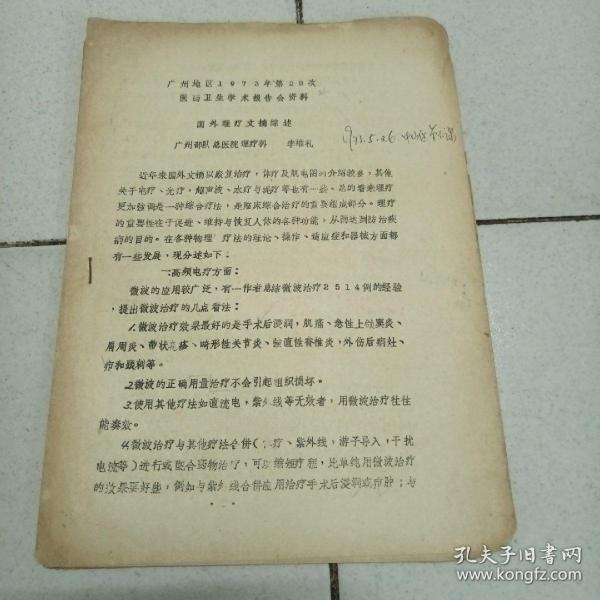 广州地区1973年第20次
医药卫生学术报告会资料
国外理疗文摘综述
广州部队总医院理疗科 李维礼
1973.5.26.
近年来国外文摘以康复治疗,体疗及肌电图的介绍较多,其他
关于电疗、光疗,超声波、水疗与泥疗等也有一些。总的看来理疗
更加强调是一种综合疗法,是临床综合治疗的重要组成部分。理疗
的重要性在于促进、维持与恢复人体的各种功能,从而达到防治疾
病的目的。在各种物理疗法的理论、操作、适应症和器械方面都
有一些发展,现分述如下:
一、高频电疗方面:
微波的应用较广泛,有一作者总结微波治疗2514例的经验
,提出微波治疗的几点看法:
1.微波治疗效果最好的是手术后浸润,肌痛、急性上颌窦炎、
肩周炎、带状疱疹、畸形性关节炎、强直性脊椎炎,外伤后病灶、
疖和跟刺等。
2.微波的正确用量治疗不会引起组织损坏。
3.使用其他疗法如直流电,紫外线等无效者,用微波治疗往往
能奏效。
4.微波治疗与其他疗法合併(水疗、紫外线,游子导入,干扰
电流等)进行或配合药物治疗,可以缩短疗程,比单纯用微波治疗
的效果要好些,例如与紫外线合併应用治疗手术后浸润或疖肿;与
孔夫子旧书网
www.kongfz.com